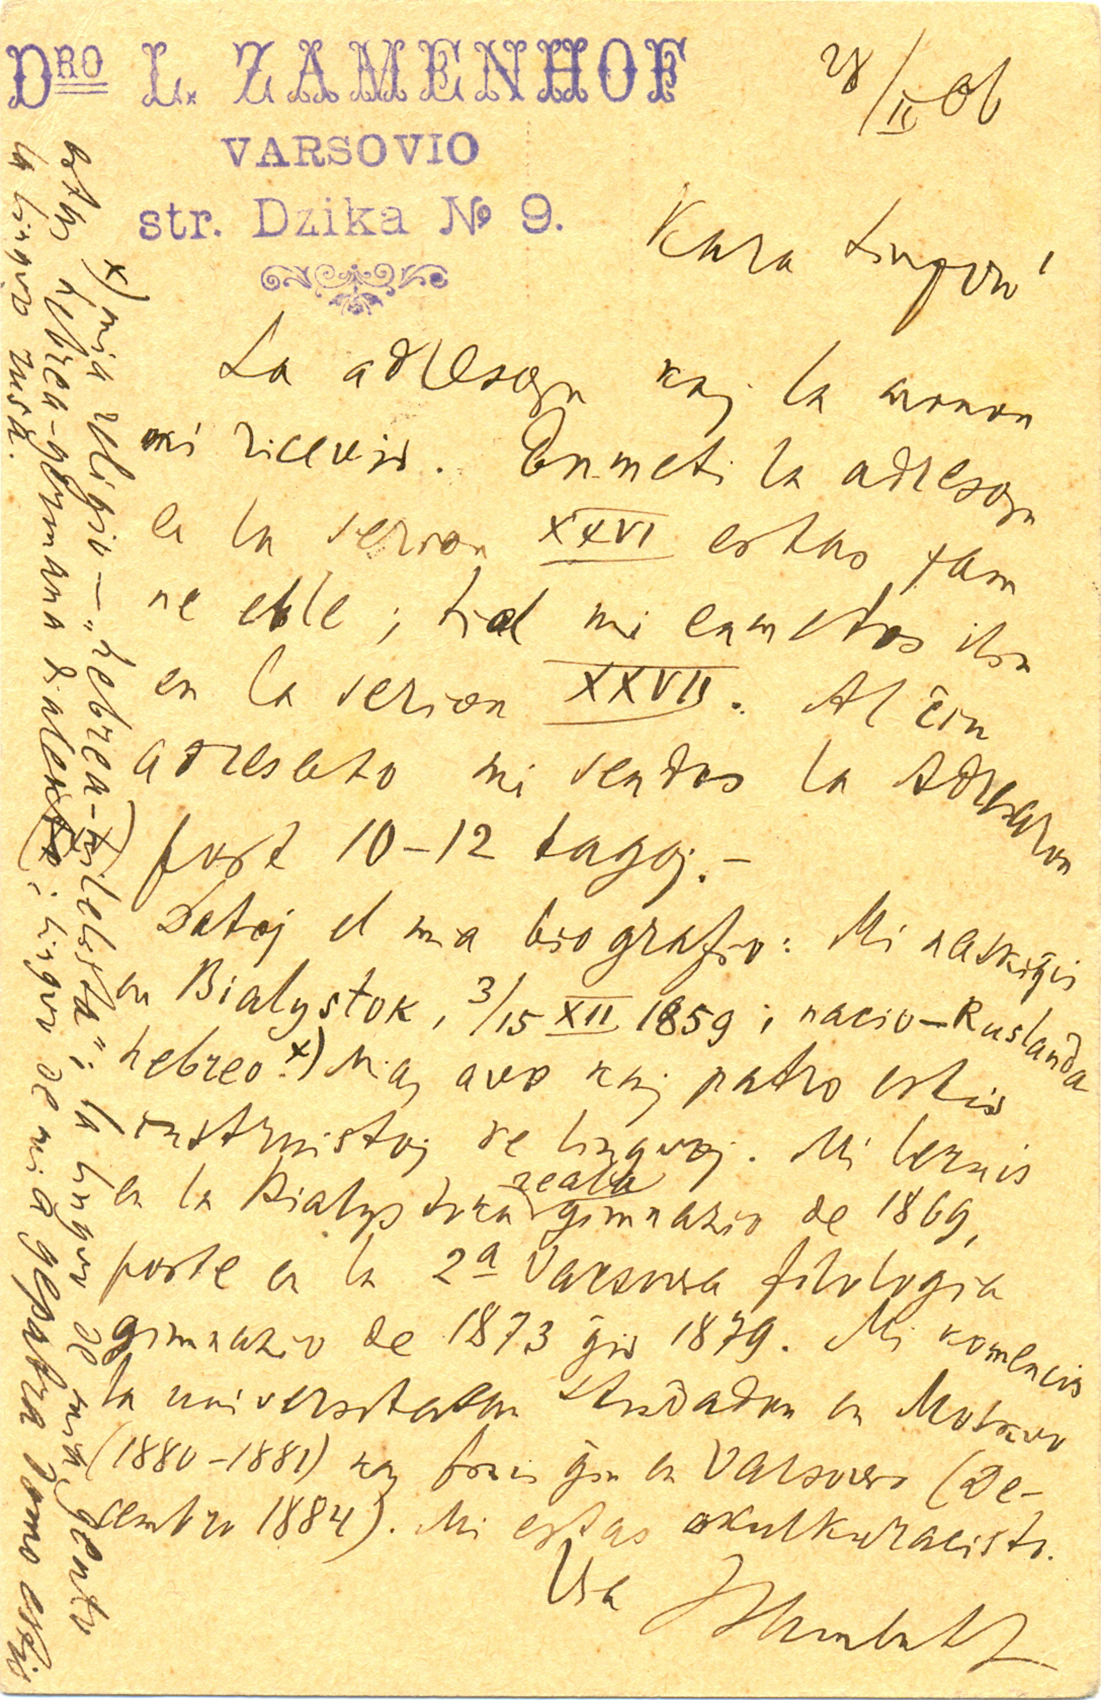 Dro L. ZAMENHOF
VARSOVIO
str. Dzika № 9.
28/II 06
Kara Sinjoro!
La adresojn kaj la monon
mi ricevis. Enmeti la adresojn
en la serion XXVI estas jam
ne eble; tial mi enmetos ilin
en la serion XXVII. Al ĉiu
adresato mi sendos la Adresaron
post 10–12 tagoj. –
Datoj el mia biografio: Mi naskiĝis
en Bialystok, 3/15 XII 1859; nacio – Ruslanda
hebreo. x) Miaj avo kaj patro estis
instruistoj de lingvoj. Mi lernis
en la Bialystoka reala gimnazio de 1869,
poste en la 2a Varsovia filologia
gimnazio de 1873 ĝis 1879. Mi komencis
la universitatan studadon en Moskvo
(1880–1881) kaj finis ĝin en Varsovio (De-
cembro 1884). Mi estas okulkuracisto.
Via
x) mia religio – „hebrea-hilelista“; la lingvo de mia gento
estas hebrea-germana dialekto; lingvo de mia gepatra domo estis
la lingvo rusa.